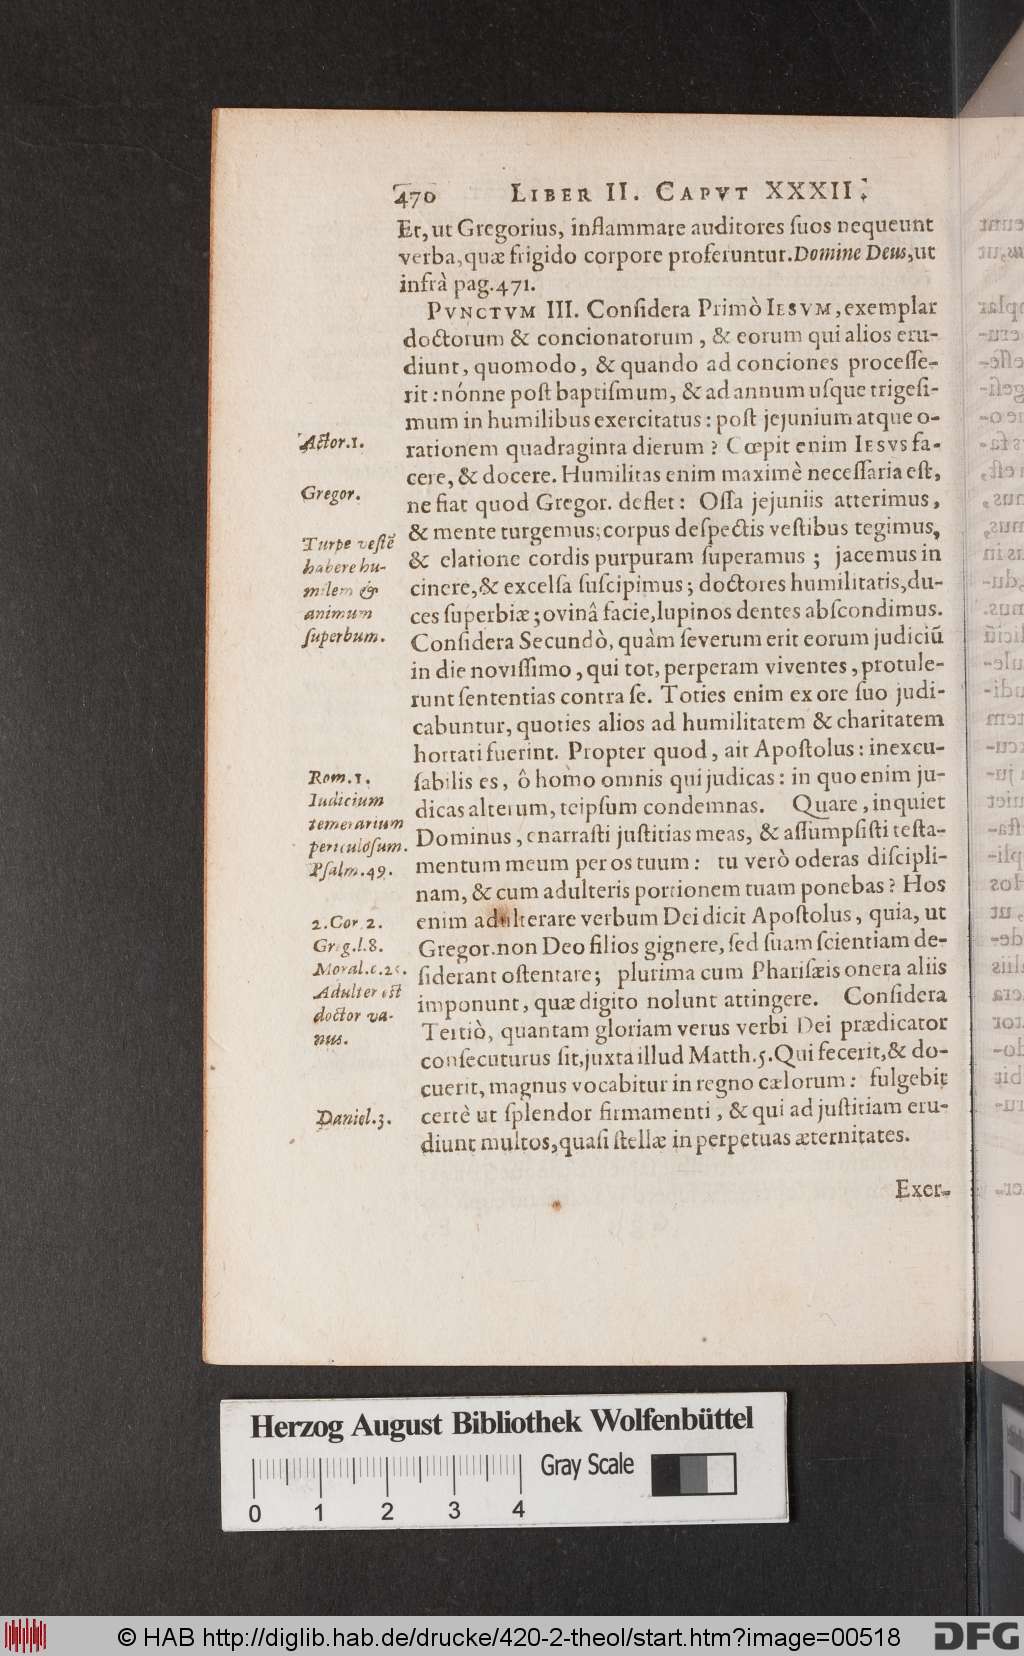 470 LIBER II. CAPVT XXXII.
Et, ut Gregorius, inflammare auditores ſuos nequeunt
verba, quæ frigido corpore proferuntur. Domine Deus, ut
infrà pag. 471.
PVNCTVM III. Conſidera Primò IESVM, exemplar
doctorum & concionatorum, & eorum qui alios eru-
diunt, quomodo, & quando ad conciones proceſſe-
rit: nónne poſt baptiſmum, & ad annum uſque trigeſi-
mum in humilibus exercitatus: poſt jejunium atque o-
rationem quadraginta dierum? Cœpit enim IESVS fa-
cere, & docere. Humilitas enim maximè neceſſaria eſt,
ne fiat quod Gregor. deflet: Oſſa jejuniis atterimus,
& mente turgemus; corpus deſpectis veſtibus tegimus,
& elatione cordis purpuram ſuperamus; jacemus in
cinere, & excelſa ſuſcipimus; doctores humilitatis, du-
ces ſuperbiæ; ovinâ facie, lupinos dentes abſcondimus.
Conſidera Secundò, quàm ſeverum erit eorum judiciũ
in die noviſſimo, qui tot, perperam viventes, protule-
runt ſententias contra ſe. Toties enim ex ore ſuo judi-
cabuntur, quoties alios ad humilitatem & charitatem
hortati fuerint. Propter quod, ait Apoſtolus: inexcu-
ſabilis es, ô homo omnis qui judicas: in quo enim ju-
dicas alterum, teipſum condemnas. Quare, inquiet
Dominus, enarraſti juſtitias meas, & aſſumpſiſti teſta-
mentum meum per os tuum: tu verò oderas diſcipli-
nam, & cum adulteris portionem tuam ponebas? Hos
enim adulterare verbum Dei dicit Apoſtolus, quia, ut
Gregor. non Deo filios gignere, ſed ſuam ſcientiam de-
ſiderant oſtentare; plurima cum Phariſæis onera aliis
imponunt, quæ digito nolunt attingere. Conſidera
Tertiò, quantam gloriam verus verbi Dei prædicator
conſecuturus ſit, juxta illud Matth. 5. Qui fecerit, & do-
cuerit, magnus vocabitur in regno cælorum: fulgebit
certè ut ſplendor firmamenti, & qui ad juſtitiam eru-
diunt multos, quaſi ſtellæ in perpetuas æternitates.
Exer-
Actor. 1.
Gregor.
Turpe veſtẽ
habere hu-
milem &
animum
ſuperbum.
Rom. 1.
Iudicium
temerarium
periculoſum.
Pſalm. 49.
2. Cor. 2.
Greg. l. 8.
Moral. c. 25.
Adulter eſt
doctor va-
nus.
Daniel. 3.
Herzog August Bibliothek Wolfenbüttel
Gray Scale
0 1 2 3 4
© HAB http://diglib.hab.de/drucke/420-2-theol/start.htm?image=00518
DFG